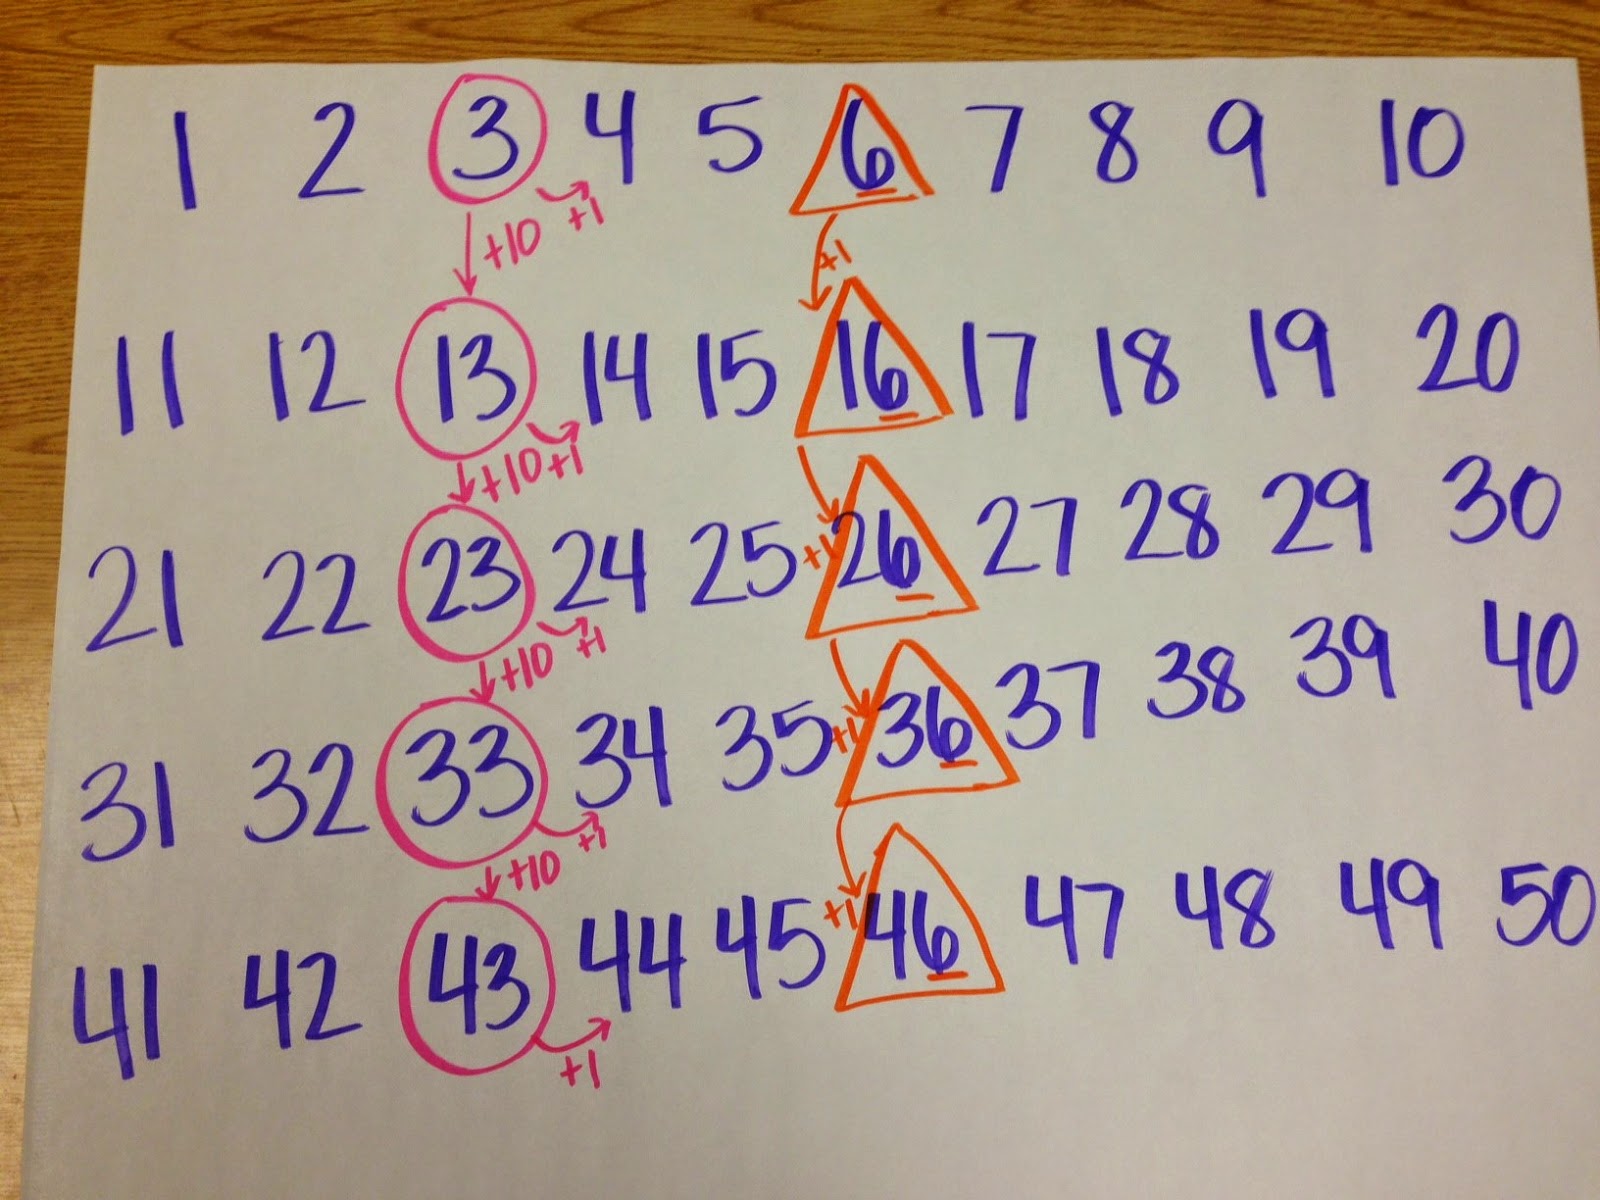 1 2 3 4 5 6 7 8 9 10
+10 +1 +1
11 12 13 14 15 16 17 18 19 20
+10 +1
21 22 23 24 25 +1 26 27 28 29 30
+10 +1
31 32 33 34 35 +1 36 37 38 39 40
+10 +1
41 42 43 44 45 +1 46 47 48 49 50
+1